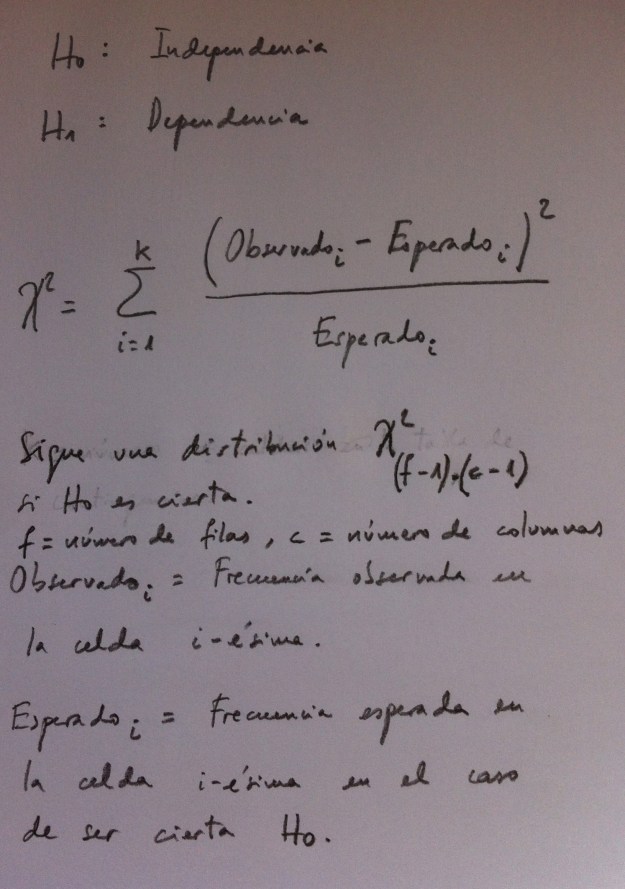 H₀ : Independencia
H₁ : Dependencia
χ² = Σ_{i=1}^{k} (Observado_i − Esperado_i)² / Esperado_i
Sigue una distribución χ²_{(f-1)·(c-1)}
si H₀ es cierta.
f = número de filas, c = número de columnas
Observado_i = Frecuencia observada en
la celda i-ésima.
Esperado_i = Frecuencia esperada en
la celda i-ésima en el caso
de ser cierta H₀.